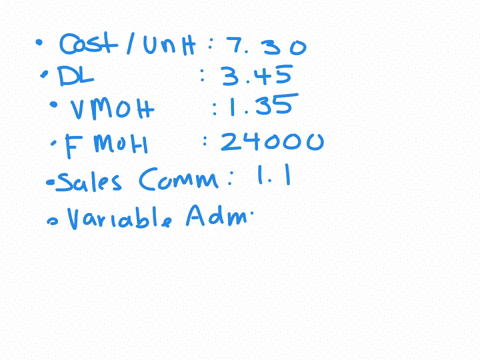 • Cost/Unit : 7.30
• DL : 3.45
• VMOH : 1.35
• FMOH : 24000
• Sales Comm : 1.1
• Variable Adm.